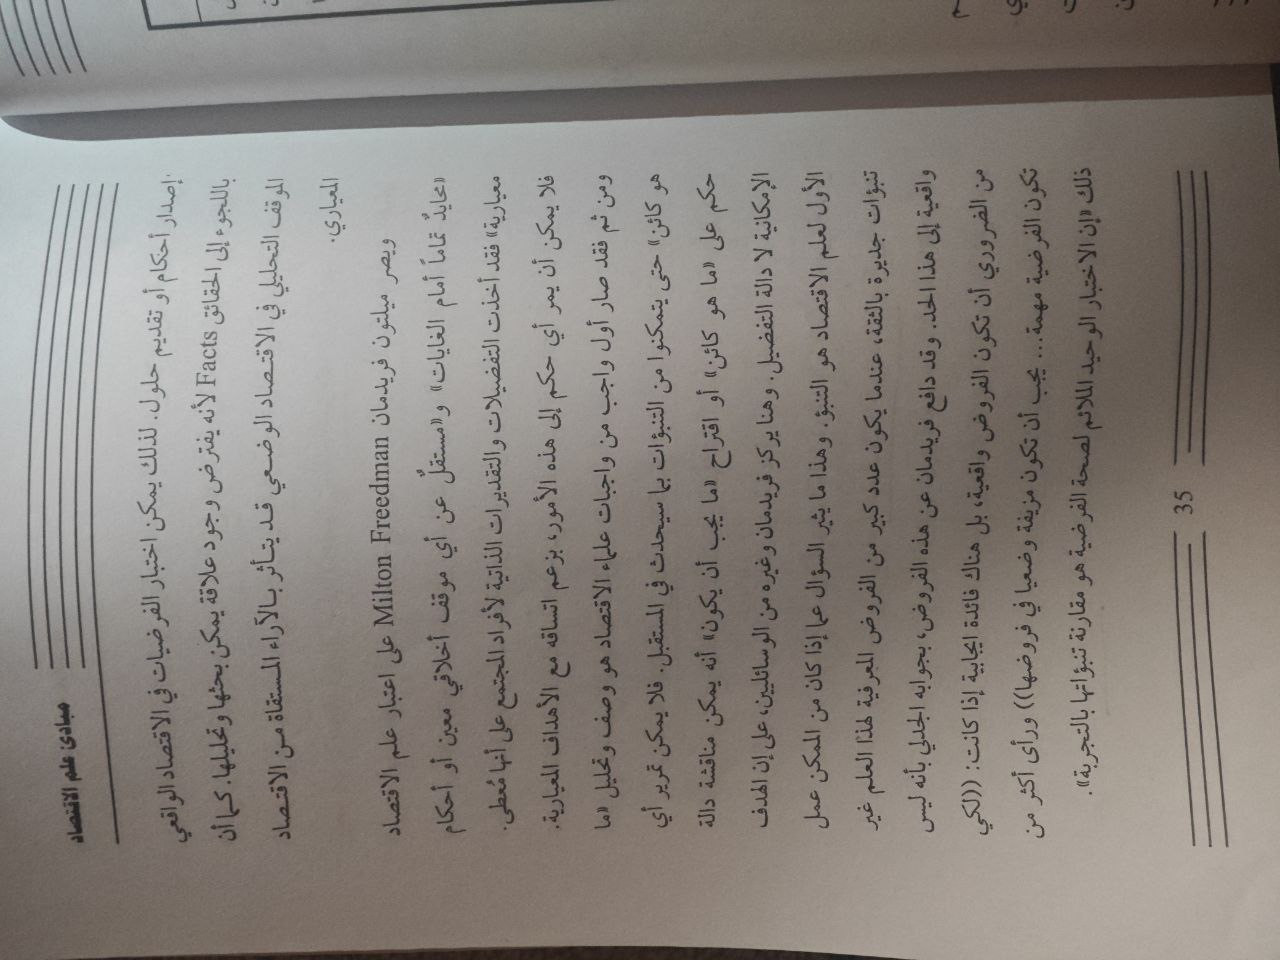 مبادئ علم الاقتصاد
إصدار أحكام أو تقديم حلول. لذلك يمكن اختبار الفرضيات في الاقتصاد الواقعي
باللجوء إلى الحقائق Facts لأنه يفترض وجود علاقة يمكن بحثها وتحليلها. كما أن
الموقف التحليلي في الاقتصاد الوضعي قد يتأثر بالآراء المستقاة من الاقتصاد
المعياري.
ويصر ميلتون فريدمان Milton Freedman على اعتبار علم الاقتصاد
«محايدٌ تماماً أمام الغايات» و«مستقلٌ عن أي موقف أخلاقي معين أو أحكام
معيارية» فقد أخذت التفضيلات والتقديرات الذاتية لأفراد المجتمع على أنها مُعطى.
فلا يمكن أن يمر أي حكم إلى هذه الأمور، بزعم اتساقه مع الأهداف المعيارية.
ومن ثم فقد صار أول واجب من واجبات علماء الاقتصاد هو وصف وتحليل «ما
هو كائن» حتى يتمكنوا من التنبؤات بما سيحدث في المستقبل. فلا يمكن تمرير أي
حكم على «ما هو كائن» أو اقتراح «ما يجب أن يكون» أنه يمكن مناقشة دالة
الإمكانية لا دالة التفضيل. وهنا يركز فريدمان وغيره من الوسائليين، على إن الهدف
الأول لعلم الاقتصاد هو التنبؤ. وهذا ما يثير السؤال عما إذا كان من الممكن عمل
تنبؤات جديرة بالثقة، عندما يكون عدد كبير من الفروض المعرفية لهذا العلم غير
واقعية إلى هذا الحد. وقد دافع فريدمان عن هذه الفروض، بجوابه الجدلي بأنه ليس
من الضروري أن تكون الفروض واقعية، بل هناك فائدة ايجابية إذا كانت: ((لكي
تكون الفرضية مهمة... يجب أن تكون مزيفة وضعيا في فروضها)) ورأى أكثر من
ذلك «إن الاختبار الوحيد الملائم لصحة الفرضية هو مقارنة تنبؤاتها بالتجربة».
35